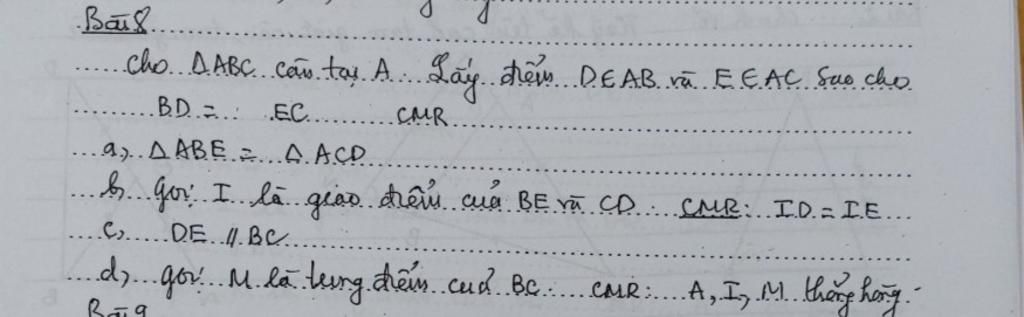 Bài 8
cho ΔABC cân tại A. Lấy điểm D∈AB và E∈AC sao cho
BD = EC CMR
a, ΔABE = ΔACD
b, Gọi I là giao điểm của BE và CD. CMR: ID = IE
c, DE // BC
d, gọi M là trung điểm của BC. CMR: A, I, M thẳng hàng.
Bài 9